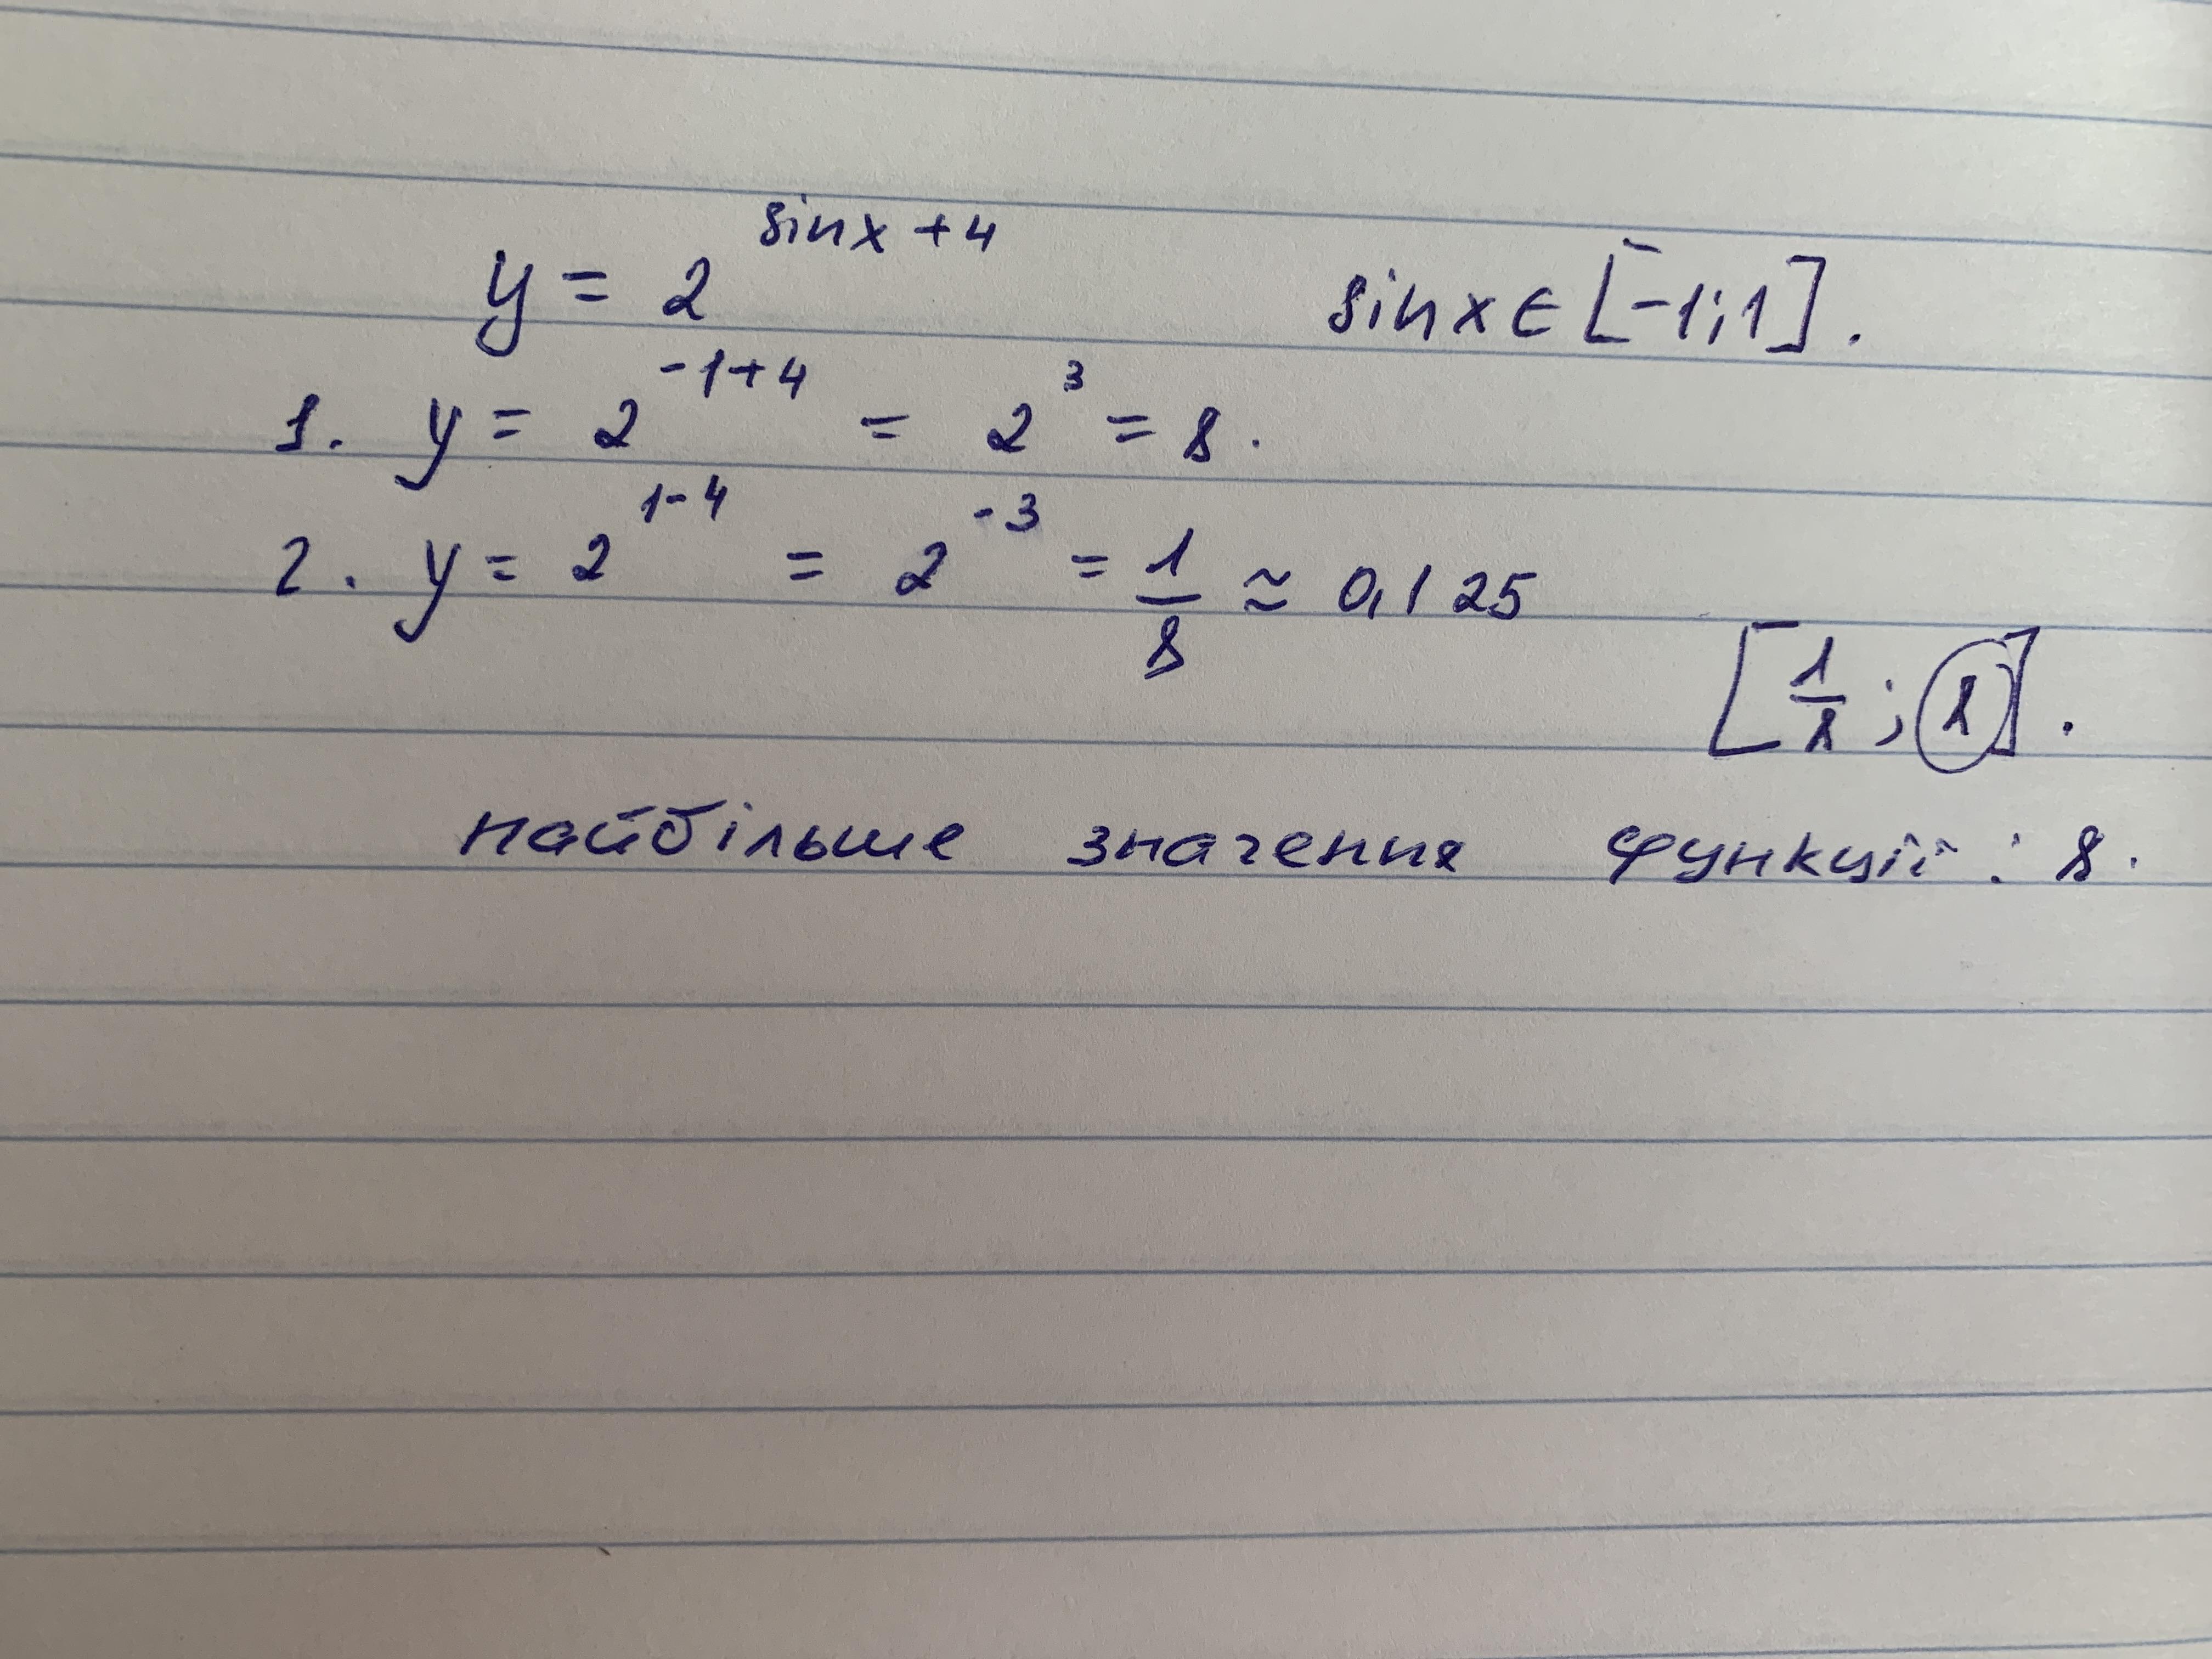 y = 2^{sinx+4} sinx ∈ [-1;1].
1. y = 2^{-1+4} = 2^3 = 8.
2. y = 2^{1-4} = 2^{-3} = 1/8 ≈ 0,125
[1/8; 8].
найбільше значення функції: 8.